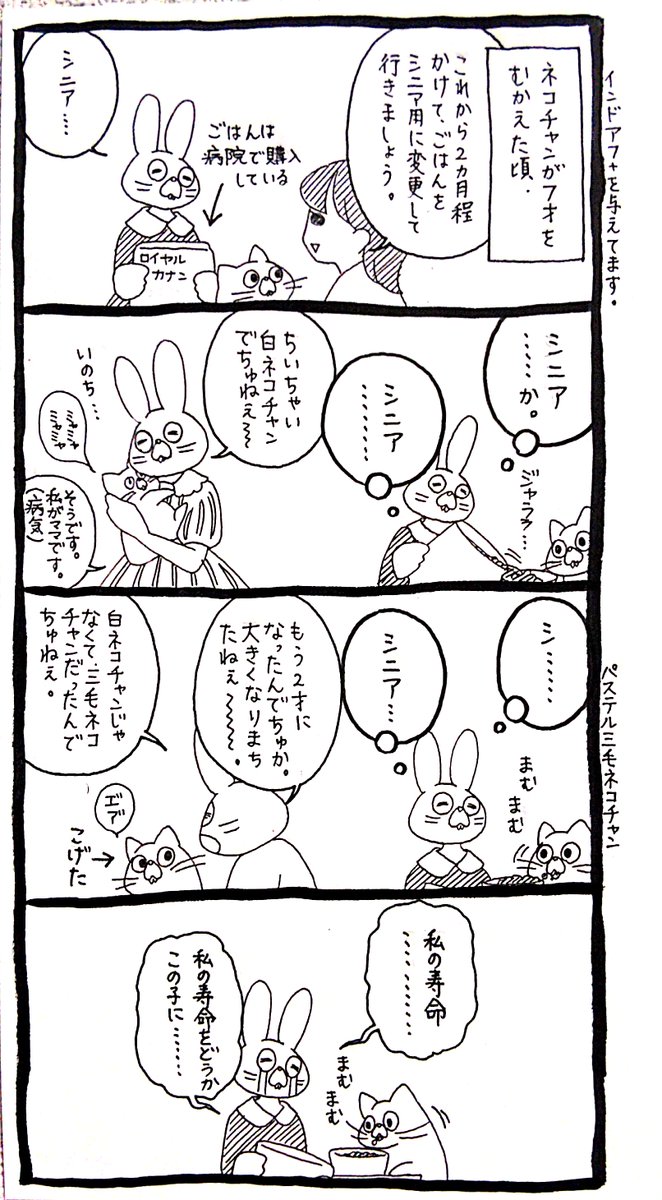 インドアフォを与えてます。
ネコチャンが7才を
むかえた頃.
これから2カ月程
かけて、ごはんを
シニア用に変更して
行きましょう。
ごはんは
病院で購入
している
ロイヤル
カナン
シニア…
シニア
……か。
ジャララ…
シニア
………
ちいちゃい
白ネコチャン
でちゅねぇ〜〜
いのち…
ミャミャ
ミャミャ
そうです。
私がママです。
(病気)
パステル三毛ネコチャン
シ……
まむ
まむ
シニア…
もう2才に
なったんでちゅか。
大きくなりまち
たねぇ〜〜〜〜。
白ネコチャンじゃ
なくて、三毛ネコ
チャンだったんで
ちゅねぇ。
エア
こげた
私の寿命
………
まむ
まむ
私の寿命をどうか
この子に………